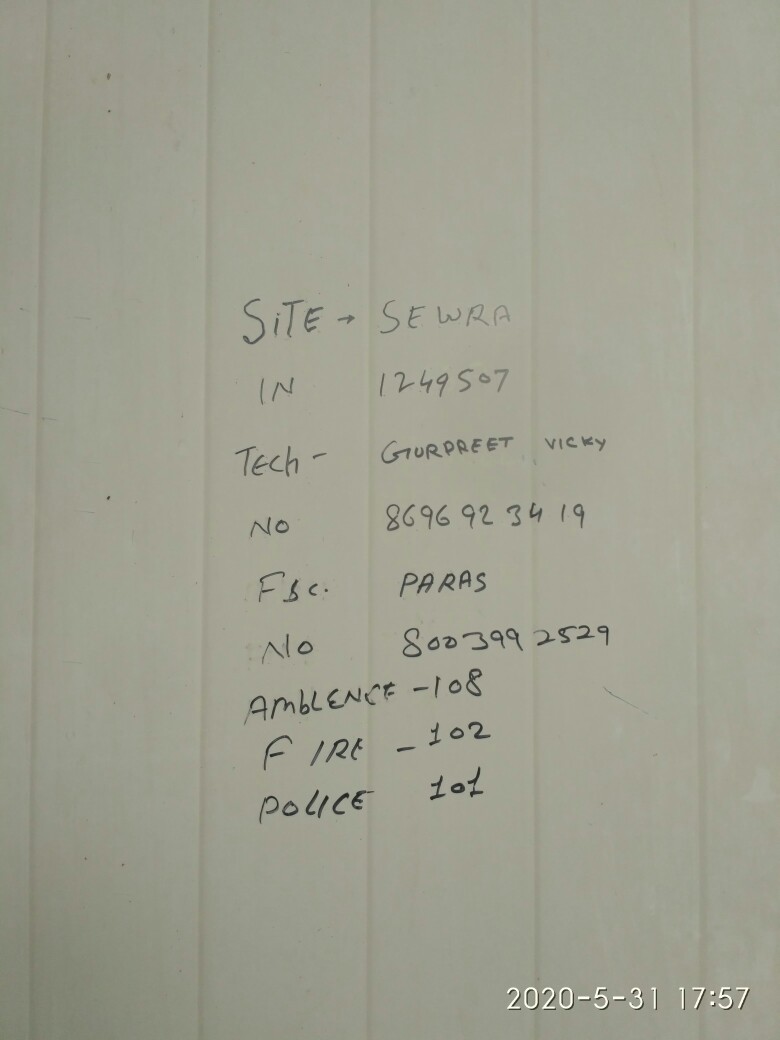 SiTE → SEWRA
IN 1249507
TECh - GURPREET VICKY
NO 8696 92 34 19
FSC. PARAS
NO 8003992529
AMbLENCE - 108
FIRE - 102
POLICE 101
2020-5-31 17:57